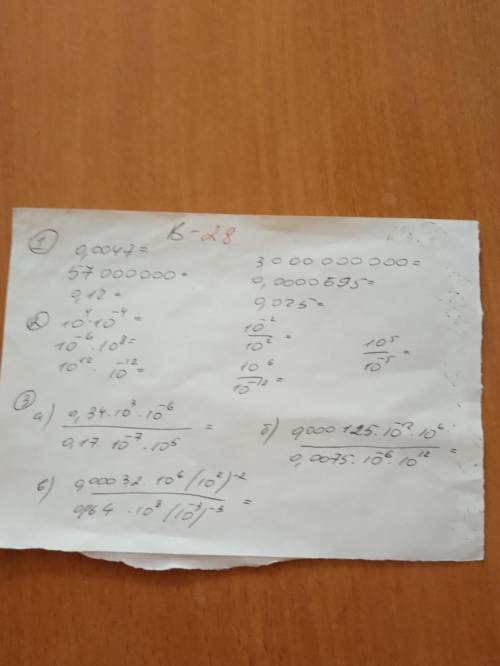 В-28
① 0,0047=
57 000000=
0,12=
30 00 000 000=
0,0000595=
0,025=
② 10⁴·10⁻⁴=
10⁻⁶·10⁸=
10¹²·10⁻¹²=
10⁻²/10²=
10⁶/10⁻¹²=
10⁵/10⁻⁵=
③ а) 0,34·10³·10⁻⁶ / 0,17·10⁻⁷·10⁵ =
б) 0,000125·10⁻²·10⁶ / 0,0075·10⁻⁶·10¹² =
в) 0,00032·10⁶(10²)⁻² / 0,64·10⁸(10⁻³)⁻³ =